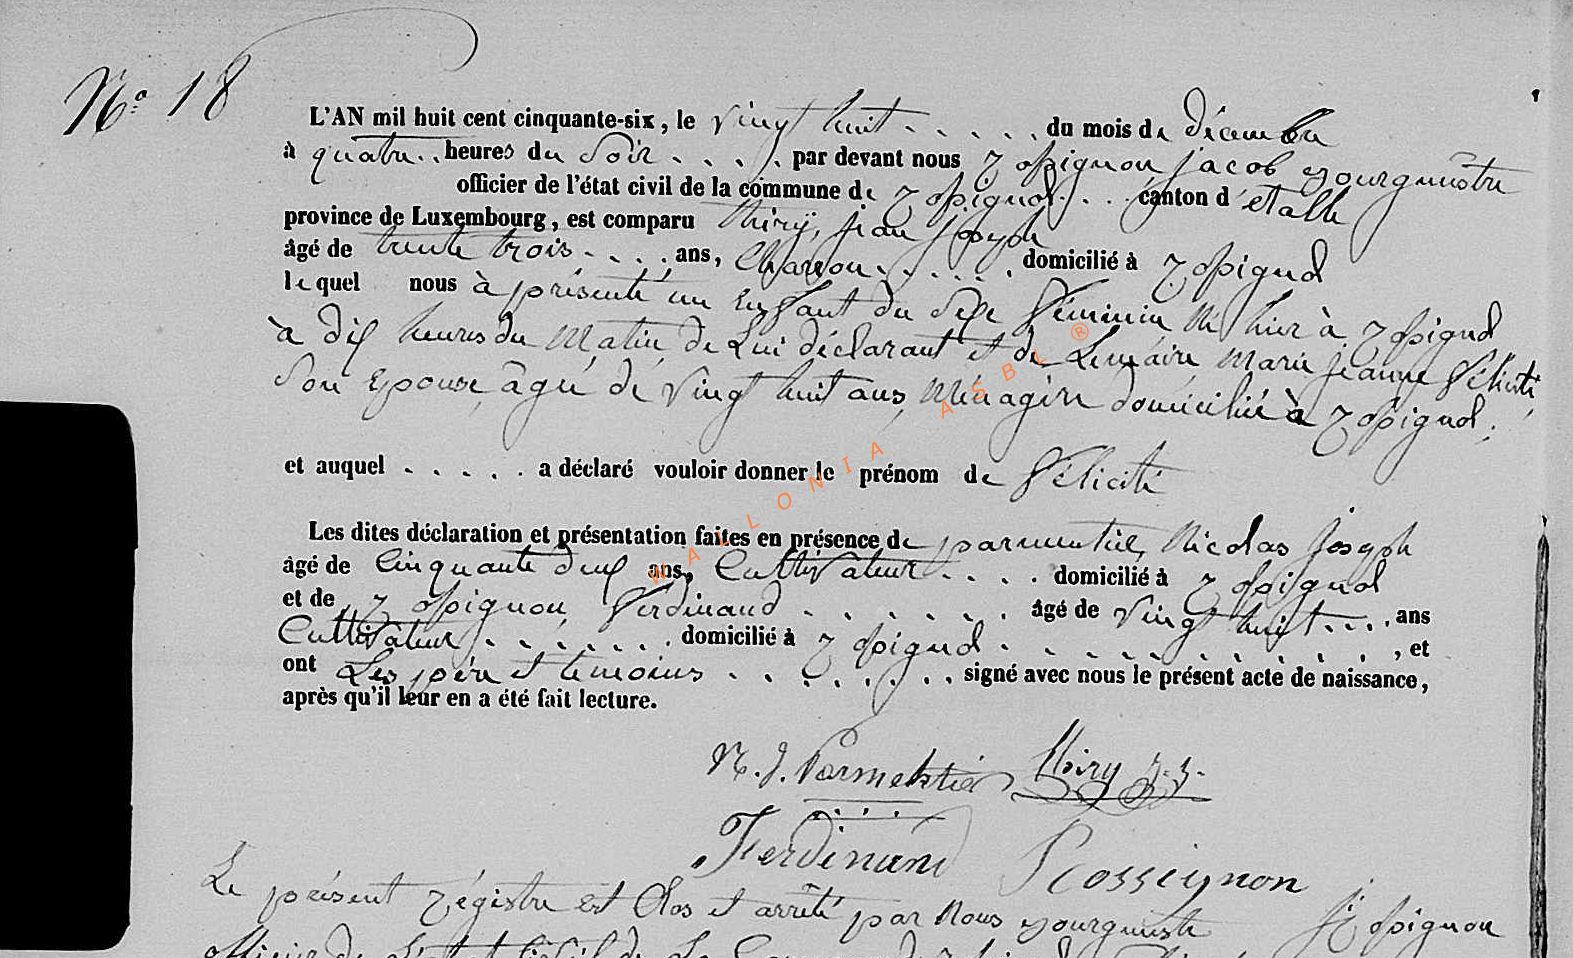 N.º 18
L'AN mil huit cent cinquante-six, le vingt huit . . . . . du mois de décembre
à quatre . . heures du soir . . . . . par devant nous rossignon jacob Bourgmestre
officier de l'état civil de la commune de rossignol . . . canton d'étalle
province de Luxembourg, est comparu thiry, jean joseph
âgé de trente trois . . . . ans, Charron . . . . . domicilié à rossignol
lequel nous à présenté un Enfant du sexe féminin Né hier à rossignol
à dix heures du Matin de Lui déclarant et de Lemaire Marie jeanne félicité
son Epouse, âgée de vingt huit ans, Ménagère domiciliée à rossignol.
et auquel . . . . . a déclaré vouloir donner le prénom de félicité
Les dites déclaration et présentation faites en présence de parmentier, Nicolas joseph
âgé de Cinquante deux ans, Cultivateur . . . . domicilié à rossignol
et de rossignon, ferdinand . . . . . . âgé de vingt huit . . . ans
Cultivateur . . . . . . . domicilié à rossignol . . . . . . . . . . , et
ont Les père et témoins . . . . . . . . signé avec nous le présent acte de naissance,
après qu'il leur en a été fait lecture.
N. J. Parmentier Thiry J. J.
Ferdinand Rossignon
Le présent régistre est Clos et arrêté par Nous Bourgmestre J rossignon
officier de L'état Civil de La Commune de
WALLONIA ASBL ®